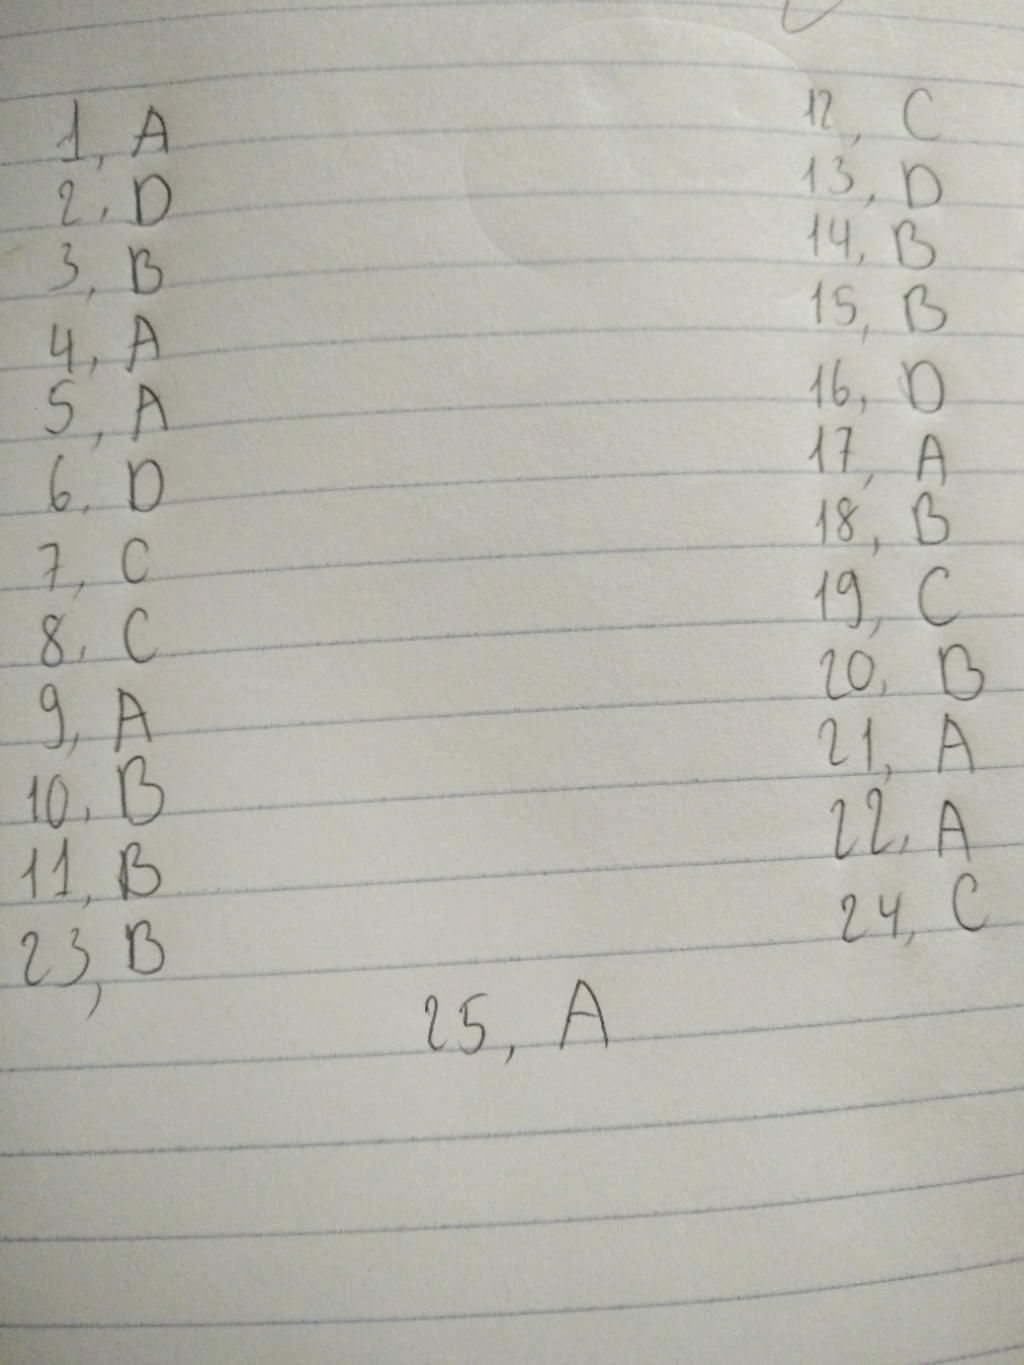 1, A
2, D
3, B
4, A
5, A
6. D
7, C
8. C
9, A
10. B
11, B
23, B
12, C
13, D
14, B
15, B
16, D
17, A
18, B
19, C
20, B
21, A
22, A
24, C
25, A